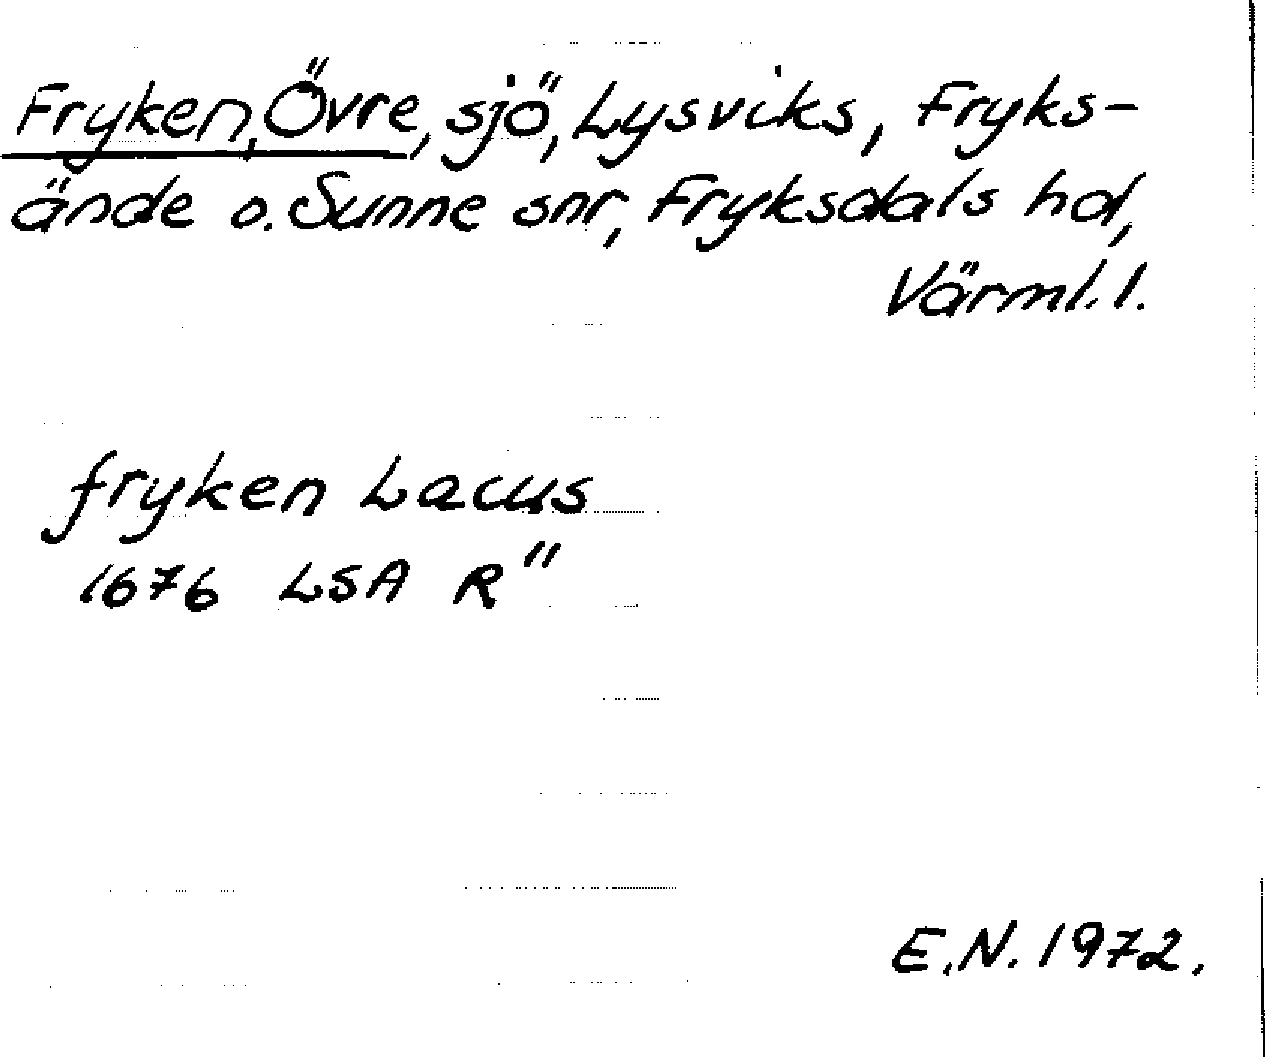 Fryken, Övre, sjö, Lysviks, Fryks-
ände o. Sunne snr, Fryksdals hd,
Värml. l.
fryken Lacus
1676 LSA R"
E.N. 1972.